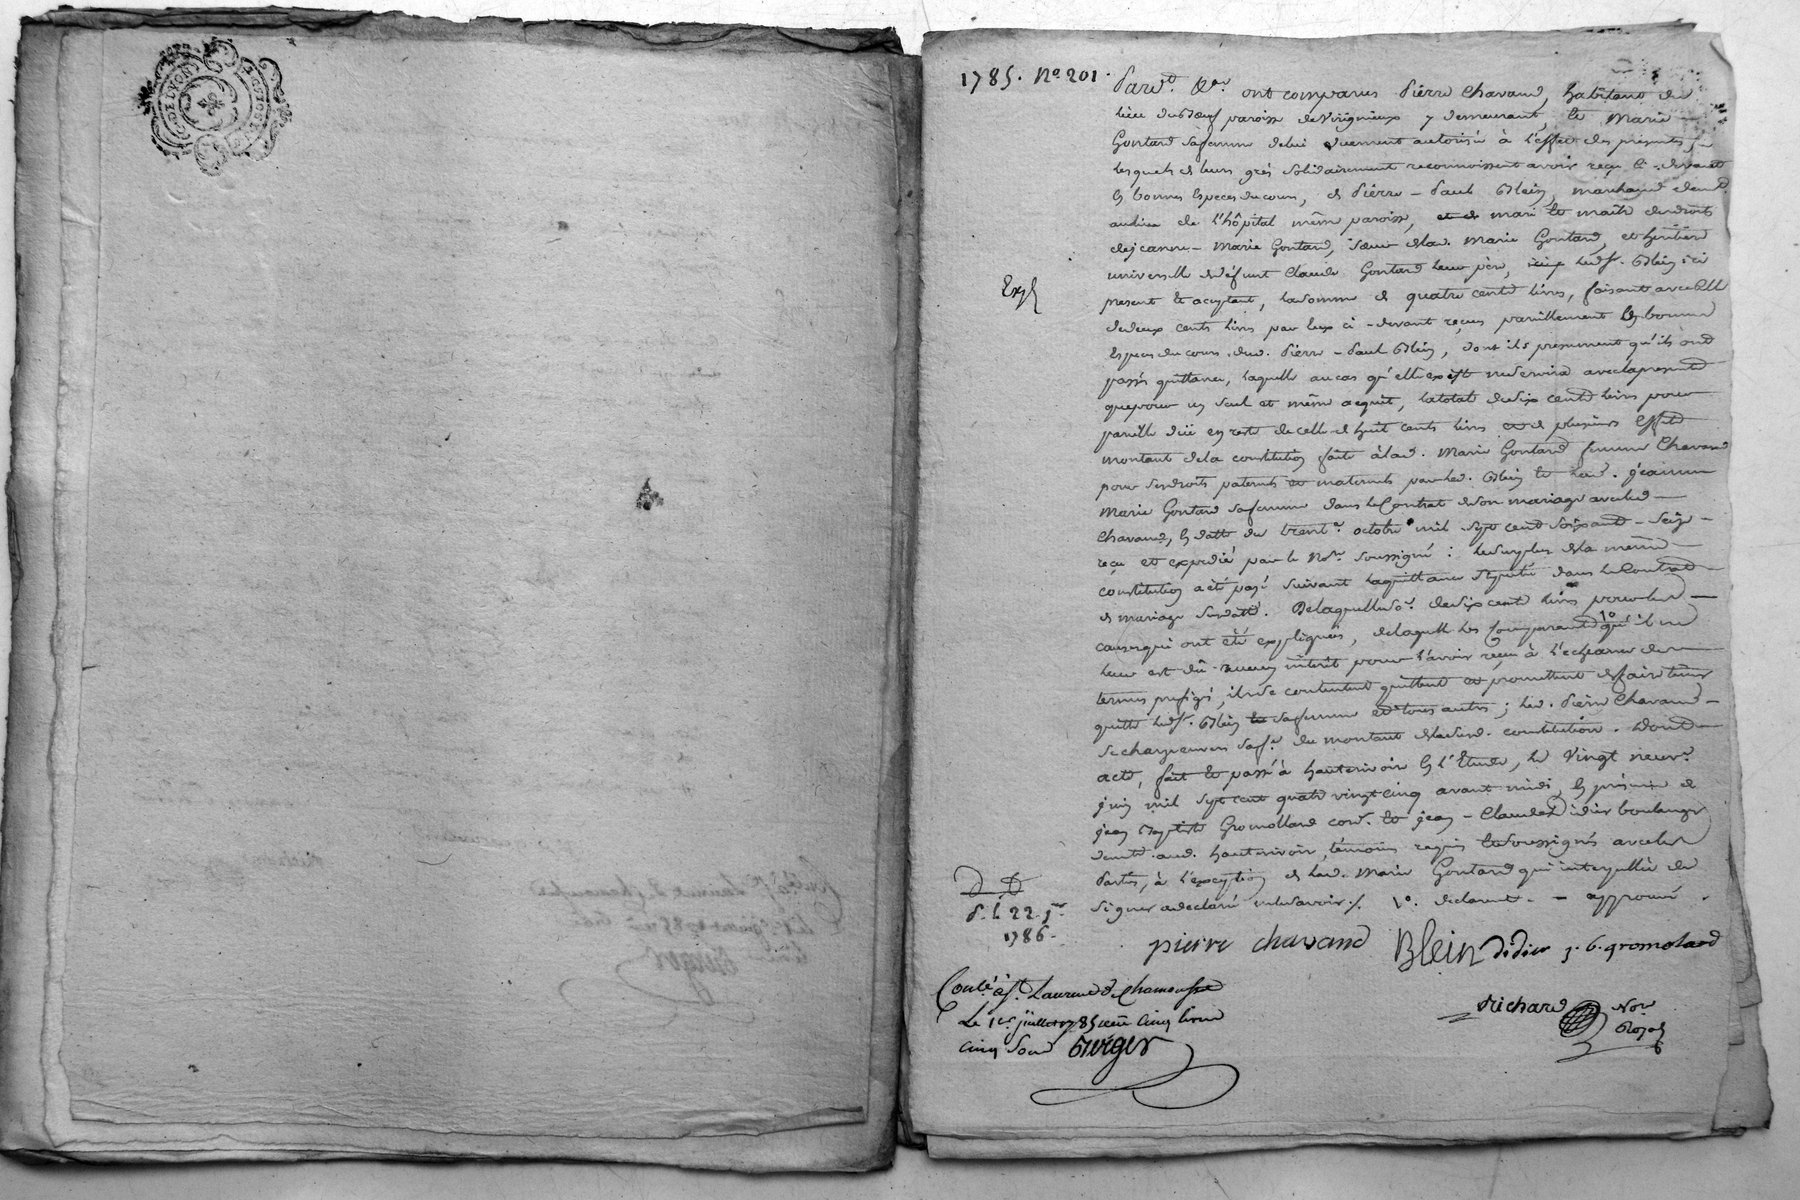 G. DE LYON
1785. No. 201.
Pard.t &.a ont comparus Pierre Chavand, habitant du
lieu du Bœuf paroisse de Virignieux y demeurant, et Marie
Gontard sa femme de lui duement autorisée à l'effet des présentes,
lesquels de leurs grés solidairement reconnoissent avoir reçu ci-devant
en bonnes especes du cours, de Pierre-Paul Blein, marchand demt.
au lieu de l'hôpital même paroisse, mari et maître des droits
de jeanne-Marie Gontard, sœur de lad. Marie Gontard, et héritière
universelle de défunt Claude Gontard leur père, led. Sr. Blein ici
Expé
présent et acceptant, la somme de quatre cents livres, faisant avec celle
de deux cents livres par eux ci-devant reçues pareillement en bonnes
especes du cours dud. Pierre-Paul Blein, dont ils présument qu'ils ont
passés quittance, laquelle au cas qu'elle existe ne servira avec la présente
que pour un seul et même acquit, la totale de six cents livres pour
pareille düe en reste de celle de huit cents livres et de plusieurs effets
montant de la constitution faite à lad. Marie Gontard femme Chavand
pour ses droits paternels et maternels par led. Blein et lad. jeanne
Marie Gontard sa femme dans le Contrat de son mariage avec led.
Chavand, en datte du trente octobre mil sept cent soixante-seize
reçu et expédié par le No.re soussigné : le surplus de la même
constitution a été payé suivant la quittance stipulée dans le Contrat
de mariage susdatté. De laquelle so.e de six cents livres pour les
causes qui ont été expliquées, de laquelle les Comparants 1o qu'il ne
leur est dû aucun intérêt pour l'avoir reçu à l'echeance des
termes prefigés, ils se contentent quittent et promettent de faire tenir
quitte led. Sr. Blein sa femme et tous autres ; led. Pierre Chavand
se charge envers sa fe. du montant de lad. constitution. Dont
acte, fait et passé à hauterivoire en l'Etude, le vingt neuf
juin mil sept cent quatre vingt cinq avant midi, en présence de
jean Baptiste Gromollard cord. et jean-Claude Didier boulanger
demt. aud. hauterivoire, témoins requis et soussignés avec les
Parties, à l'exception de lad. Marie Gontard qui interpellée de
signer a declaré ne le savoir ./. 1o. declarent. - approuvé
P. L 22 jer
1786.
pierre chavand Blein didier j. b. gromolard
Conlé à St. Laurend de Chamousset
Le 1er juillet 1785 reçu cinq livres
cinq sous Berger
Richard Nore
Royal